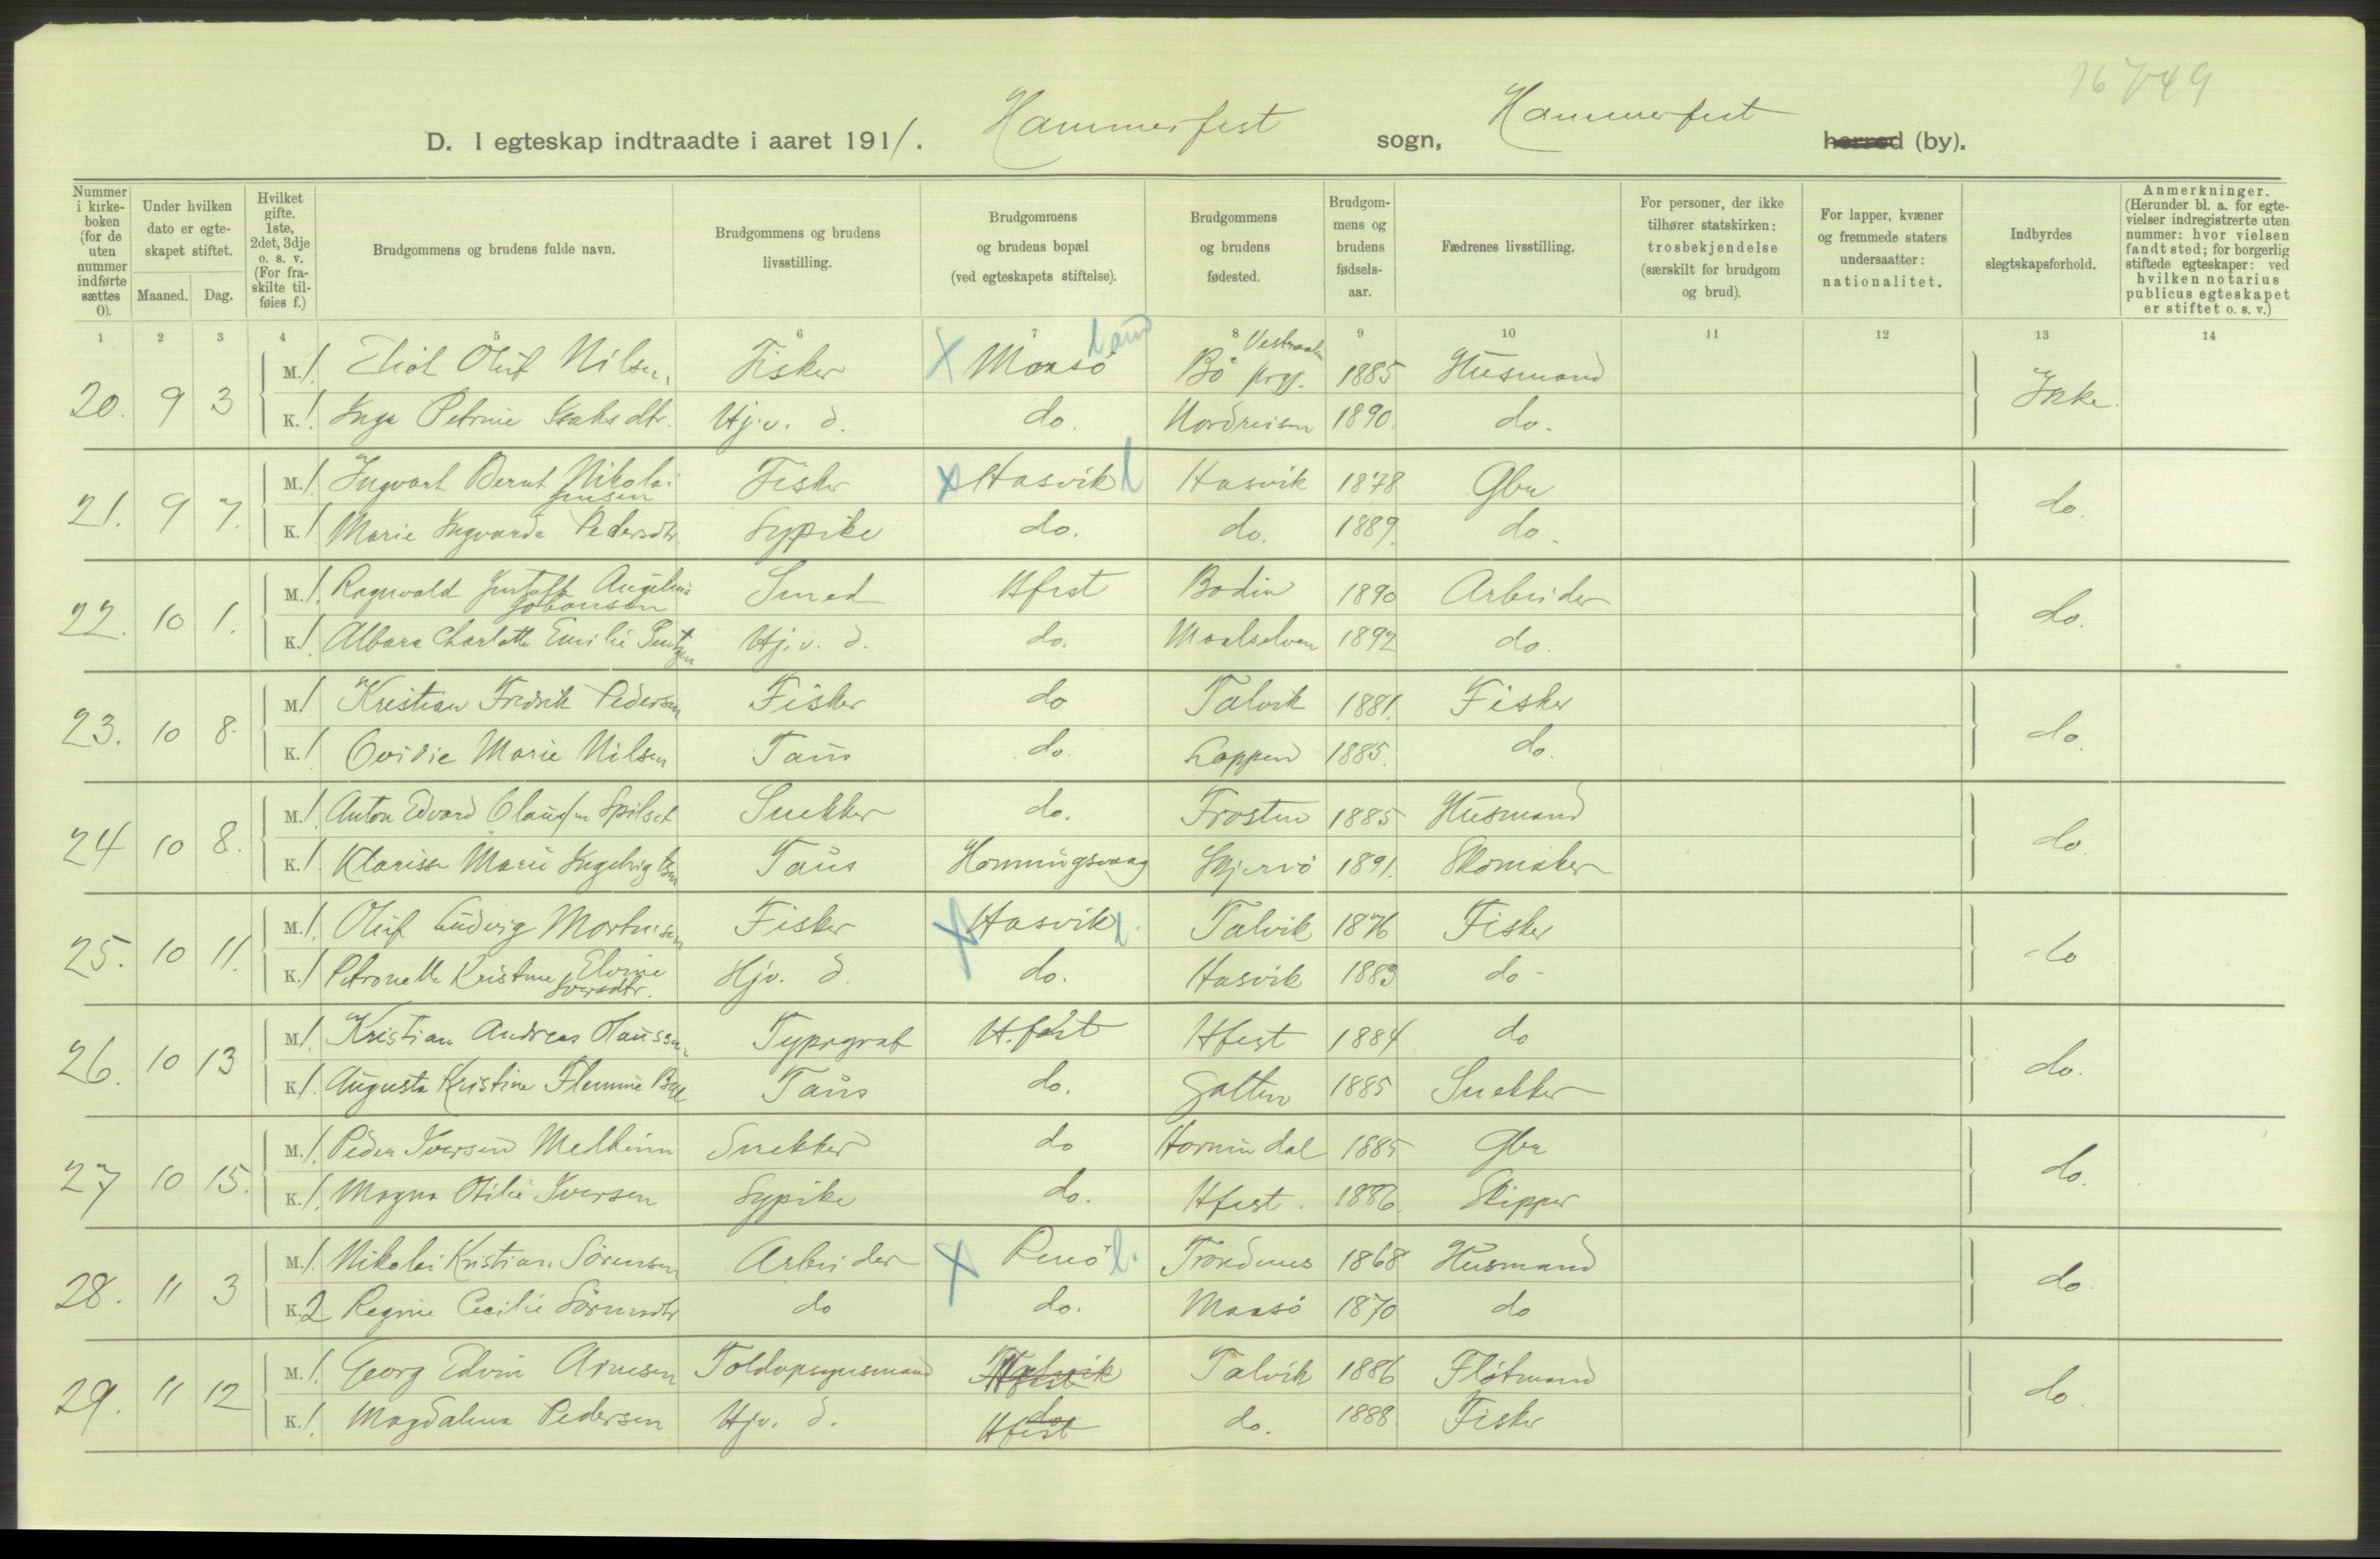 16749
D. I egteskap indtraadte i aaret 1911. Hammerfest sogn, Hammerfest herred (by).
Nummer i kirkeboken (for de uten nummer indførte sættes 0).
Under hvilken dato er egteskapet stiftet.
Maaned. Dag.
Hvilket gifte. 1ste, 2det, 3dje o. s. v. (For fraskilte tilføies f.)
Brudgommens og brudens fulde navn.
Brudgommens og brudens livsstilling.
Brudgommens og brudens bopæl (ved egteskapets stiftelse).
Brudgommens og brudens fødested.
Brudgommens og brudens fødselsaar.
Fædrenes livsstilling.
For personer, der ikke tilhører statskirken: trosbekjendelse (særskilt for brudgom og brud).
For lapper, kvæner og fremmede staters undersaatter: nationalitet.
Indbyrdes slegtskapsforhold.
Anmerkninger. (Herunder bl. a. for egtevielser indregistrerte uten nummer: hvor vielsen fandt sted; for borgerlig stiftede egteskaper: ved hvilken notarius publicus egteskapet er stiftet o. s. v.)
1 2 3 4 5 6 7 8 9 10 11 12 13 14
20. 9 3 M. 1. Oluf Nilsen, Fisker X Maasö Land Bö prgj. Vesteraalen 1885 Husmand Ikke.
K. 1. Inga Petrine Isaksdtr. Hj. v. d. do. Nordreisen 1890. do.
21. 9 7. M. 1. Ingvart Bernt Nikolai Jensen Fisker X Hasvik L Hasvik 1878 Gbr do.
K. 1. Marie Ingvarda Pedersdtr Sypike do. do. 1889. do.
22. 10 1. M. 1. Ragnvald Gustaff Johansen Smed Hfest Bodin 1890 Arbeider do.
K. 1. Charlotte Emilie Hj. v. d. do. Maalselven 1892 do.
23. 10 8. M. 1. Kristian Fredrik Pedersen Fisker do Talvik 1881. Fisker do.
K. 1. Ovidie Marie Nilsen Taus do. Loppen 1885. do.
24 10 8. M. 1. Anton Edvard Olausen Spilset Snekker do. Frosten 1885 Husmand do.
K. 1. Klarissa Marie Taus Honningsvaag Skjervö 1891. Skomaker
25. 10 11. M. 1. Oluf Ludvig Mortensen Fisker X Hasvik L. Talvik 1876 Fisker do
K. 1. Petronella Kristine Elvine Iversdtr. Hjv. d. do. Hasvik 1883 do.
26. 10 13 M. 1. Kristian Andreas Olaussen Typograf H.fest Hfest 1884 do do.
K. 1. Augusta Kristine Flemine Taus do. Galten 1885 Snekker
27 10 15. M. 1. Peder Iversen Melheim Snekker do Hornindal 1885 Gbr do.
K. 1. Magna Otilie Iversen Sypike do. Hfest. 1886. Skipper
28. 11 3 M. 1. Nikolai Kristian Sörensen Arbeider X L. Trondenes 1868 Husmand do.
K. 2 Regine Cecilie Sörensdtr do do. Maasö 1870 do
29. 11 12 M. 1. Georg Edvin Arnesen Toldopsynsmand Talvik 1886 Flötmand do.
K. 1. Magdalena Pedersen Hjv. d. Hfest do. 1888. Fisker